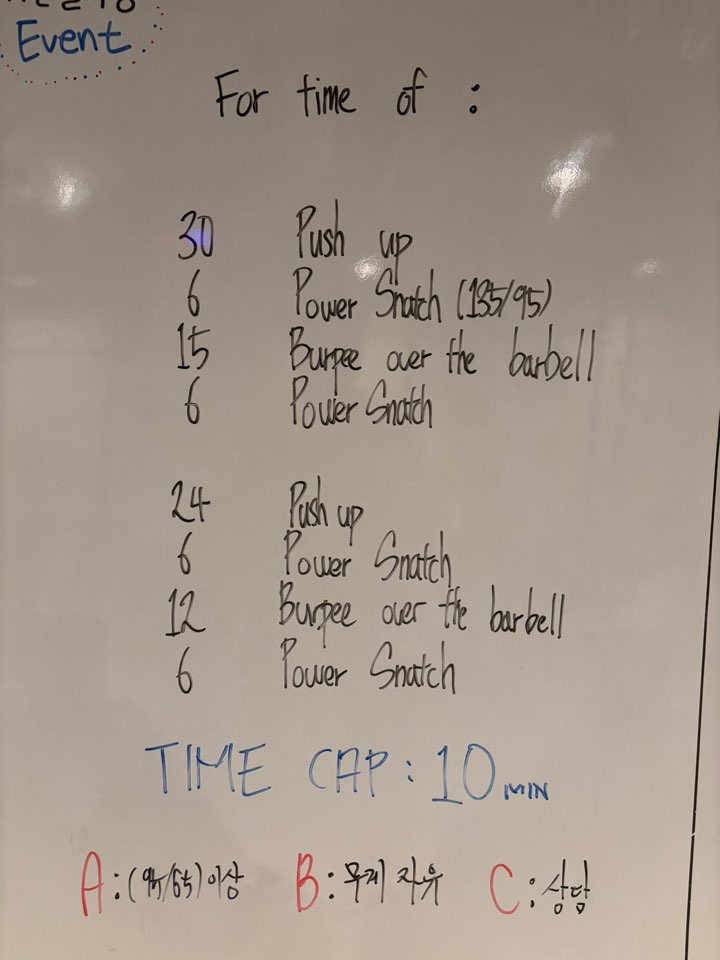 Event
For time of :
30 Push up
6 Power Snatch (135/95)
15 Burpee over the barbell
6 Power Snatch
24 Push up
6 Power Snatch
12 Burpee over the barbell
6 Power Snatch
TIME CAP : 10 MIN
A : (95/65) 이상 B : 무게 자유 C : 상담